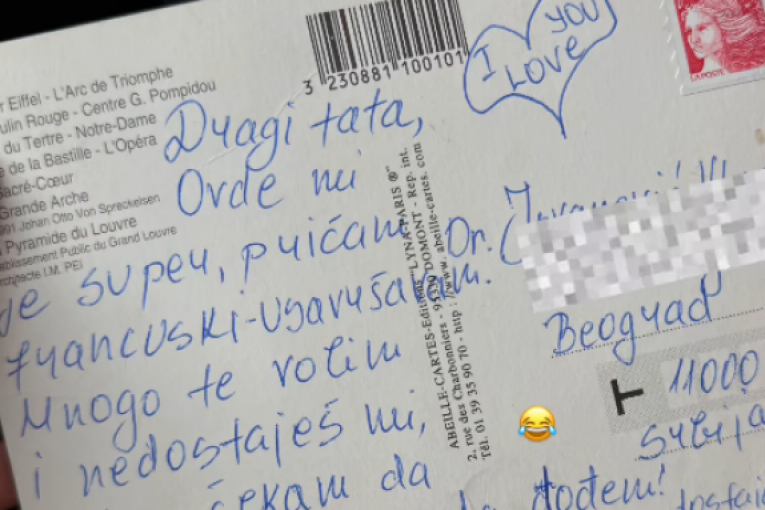 r Eiffel - L'Arc de Triomphe
ulin Rouge - Centre G. Pompidou
du Tertre - Notre-Dame
e de la Bastille - L'Opéra
Sacré-Cœur
Grande Arche
991 Johan Otto Von Spreckelsen
Pyramide du Louvre
ablissement Public du Grand Louvre
rchitecte I.M. PEI
3 230881 100101
I LOVE YOU
LA POSTE
Dragi tata,
Ovde mi
je super, pričam
francuski-usavršavam.
Mnogo te volim
i nedostaješ mi,
čekam da
dođem!
ABEILLE-CARTES-Editions "LYNA-PARIS ®"
2, rue des Charbonniers - 95330 DOMONT - Rep. int.
Tél. 01 39 35 90 70 - http://www.abeille-cartes.com
Dr.
Beograd
T 11000
Srbija